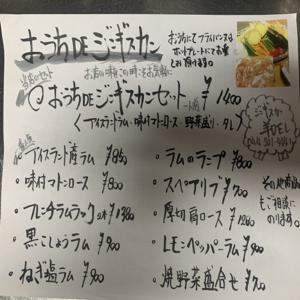 おうちDEジンギスカン
おうちにてフライパン又は
ホットプレートにてお楽
しみ頂けます。
当店のセット
お店の味をこの味をお気軽に
おうちDEジンギスカンセット 一人前 ¥1400
〈アイスランドラム・味付マトンロース・野菜盛り・タレ〉
ジンギスカン
羊DEL
単品
・アイスランド産ラム ¥850
・味付マトンロース ¥800
・フレンチラムラック 2本 ¥1380
・黒こしょうラム ¥900
・ねぎ塩ラム ¥900
・ラムのランプ ¥800
・スペアリブ ¥700
・厚切肩ロース ¥1200
・レモンペッパーラム ¥900
・焼野菜盛合せ ¥700
その他部位
もご相談に
のります。